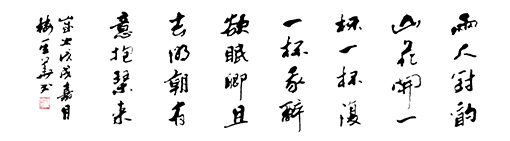 两人对酌
山花开一
杯一杯复
一杯我醉
欲眠卿且
去明朝有
意抱琴来
岁次戊戌嘉月